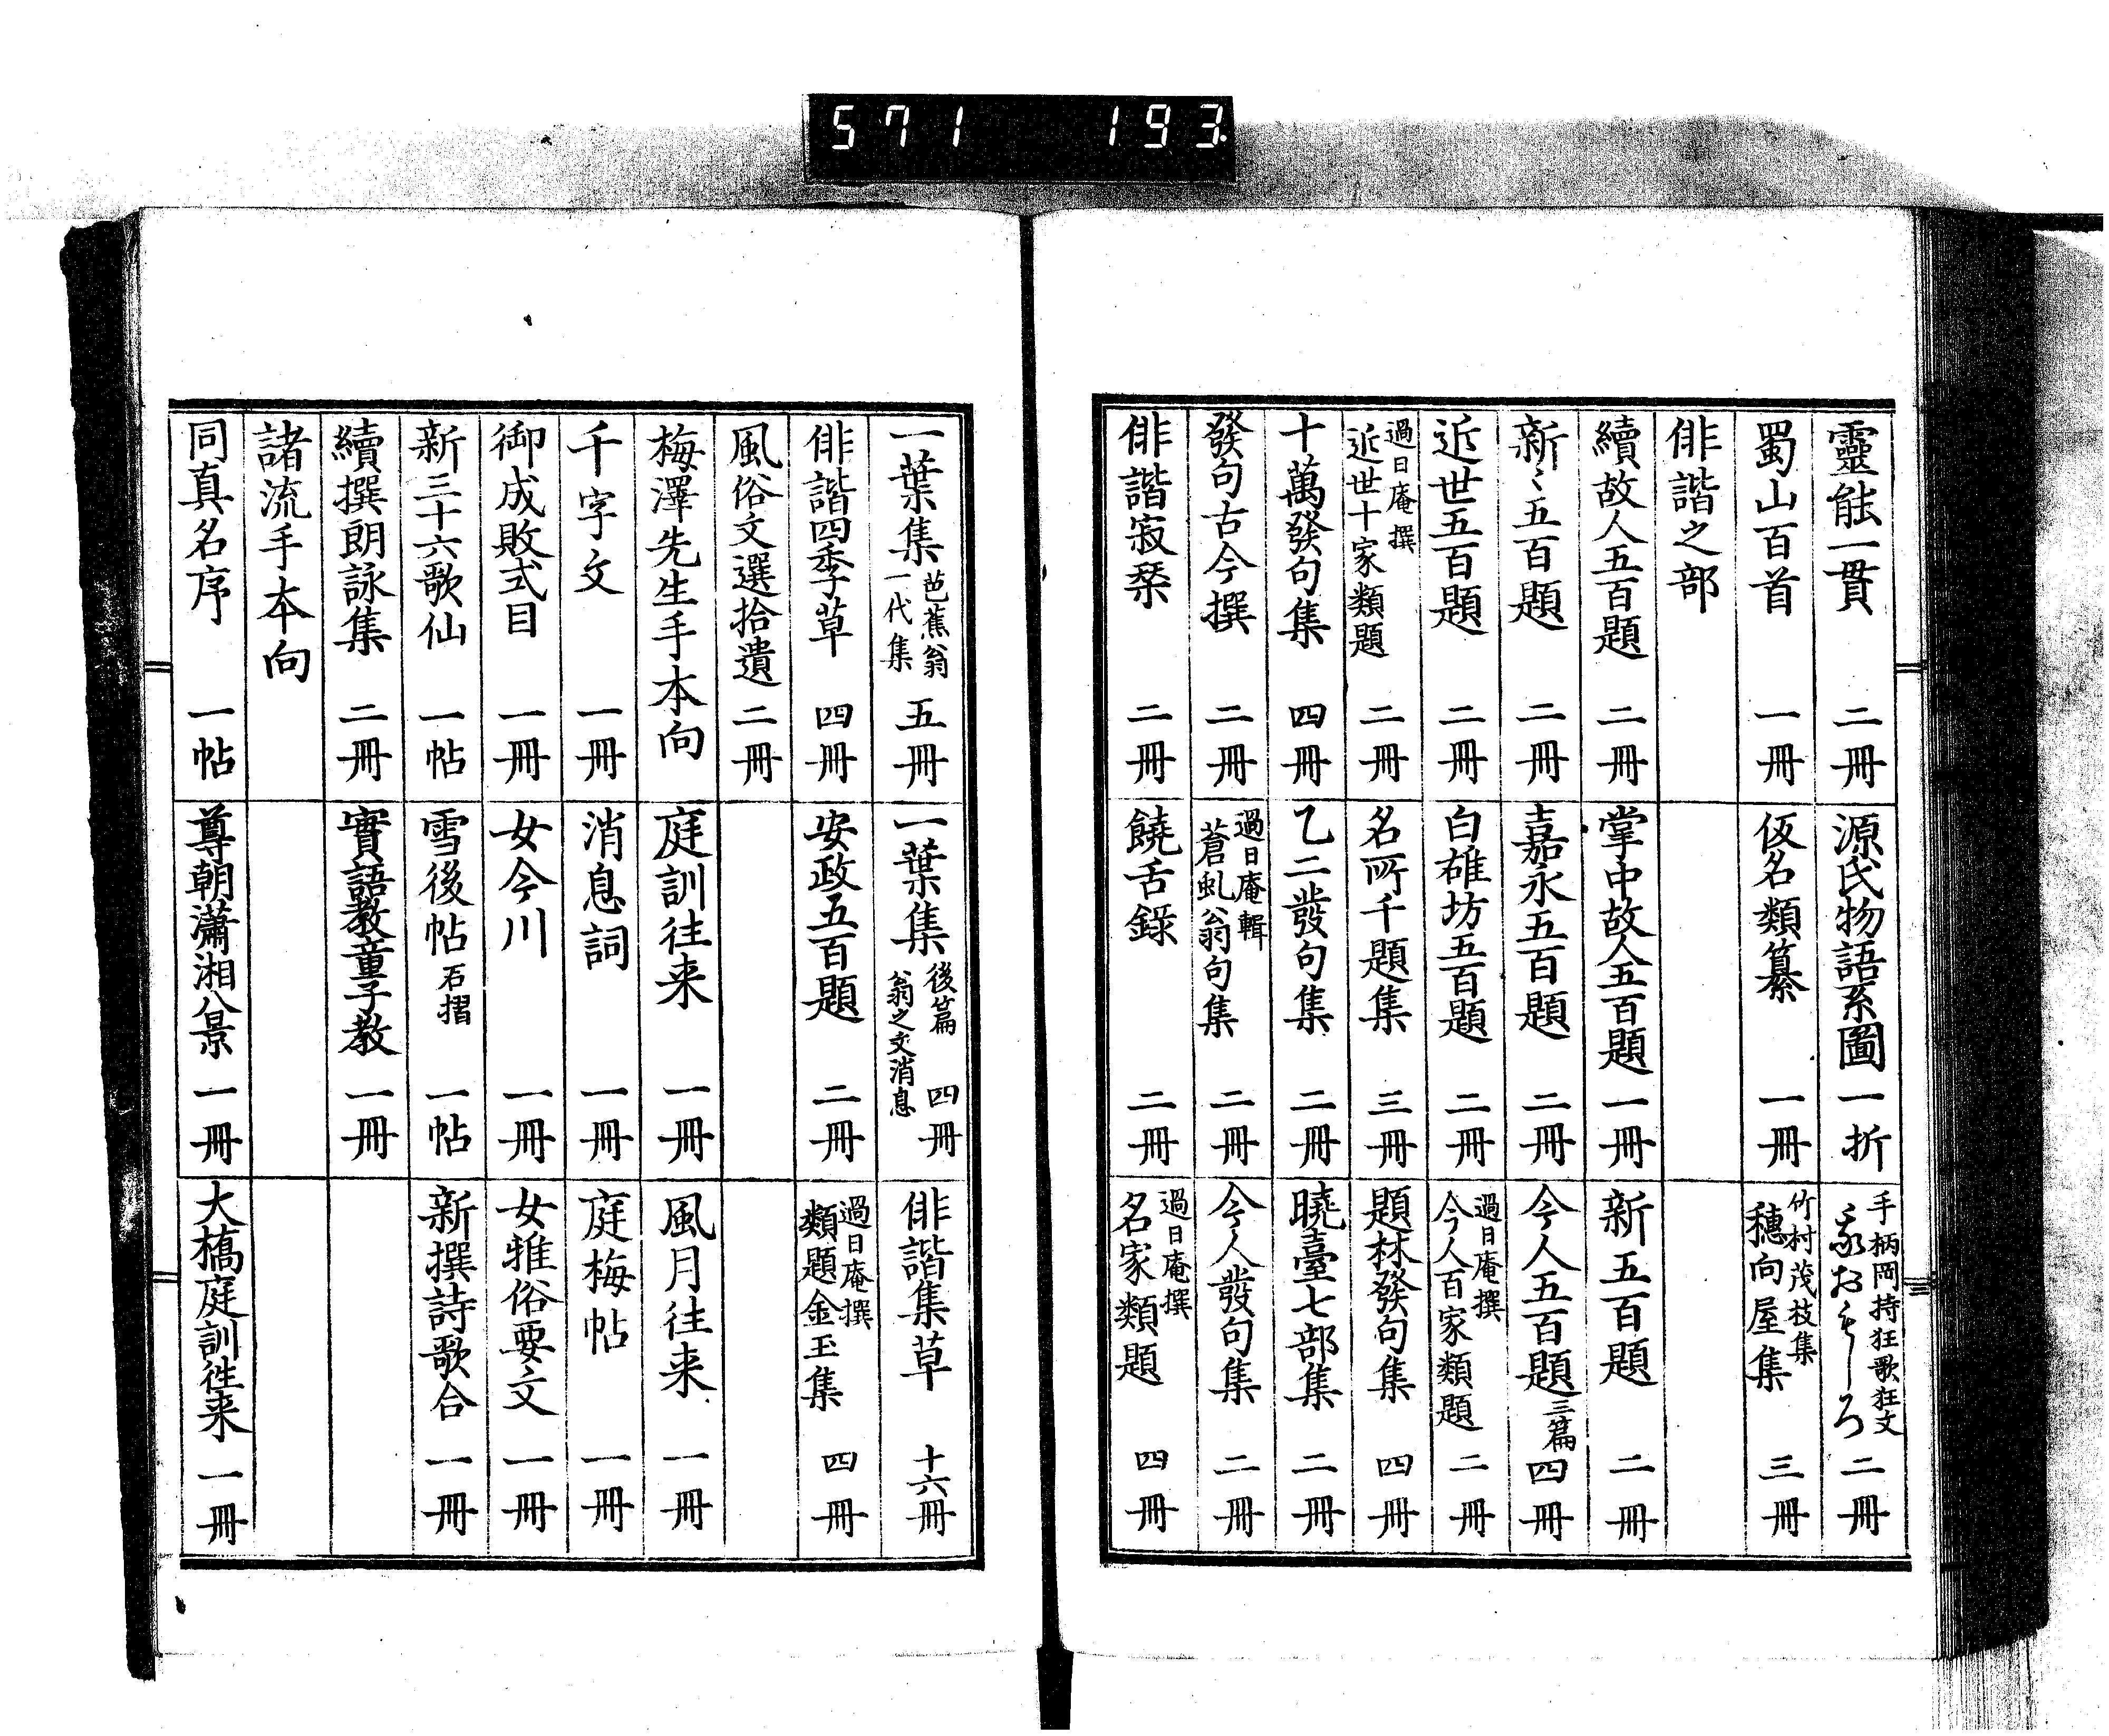 571 193
靈能一貫 二冊
源氏物語系圖 一折
手柄岡持狂歌狂文
我おもしろ 二冊
蜀山百首 一冊
仮名類纂 一冊
竹村茂枝集
穗向屋集 三冊
俳諧之部
續故人五百題 二冊
掌中故人五百題 一冊
新五百題 二冊
新〻五百題 二冊
嘉永五百題 二冊
今人五百題 三篇 四冊
近世五百題 二冊
白雄坊五百題 二冊
過日庵撰
今人百家類題 二冊
過日庵撰
近世十家類題 二冊
名所千題集 三冊
題林發句集 四冊
十萬發句集 四冊
乙二發句集 二冊
曉臺七部集 二冊
發句古今撰 二冊
過日庵輯
蒼虬翁句集 二冊
今人發句集 二冊
俳諧寂栞 二冊
饒舌錄 二冊
過日庵撰
名家類題 四冊
一葉集 芭蕉翁
一代集 五冊
一葉集 後篇
翁之文消息 四冊
俳諧集草 十六冊
俳諧四季草 四冊
安政五百題 二冊
過日庵撰
類題金玉集 四冊
風俗文選拾遺 二冊
梅澤先生手本向
庭訓往来 一冊
風月往来 一冊
千字文 一冊
消息詞 一冊
庭梅帖 一冊
御成敗式目 一冊
女今川 一冊
女雅俗要文 一冊
新三十六歌仙 一帖
雪後帖 石摺 一帖
新撰詩歌合 一冊
續撰朗詠集 二冊
實語教童子教 一冊
諸流手本向
同真名序 一帖
尊朝瀟湘八景 一冊
大橋庭訓往来 一冊